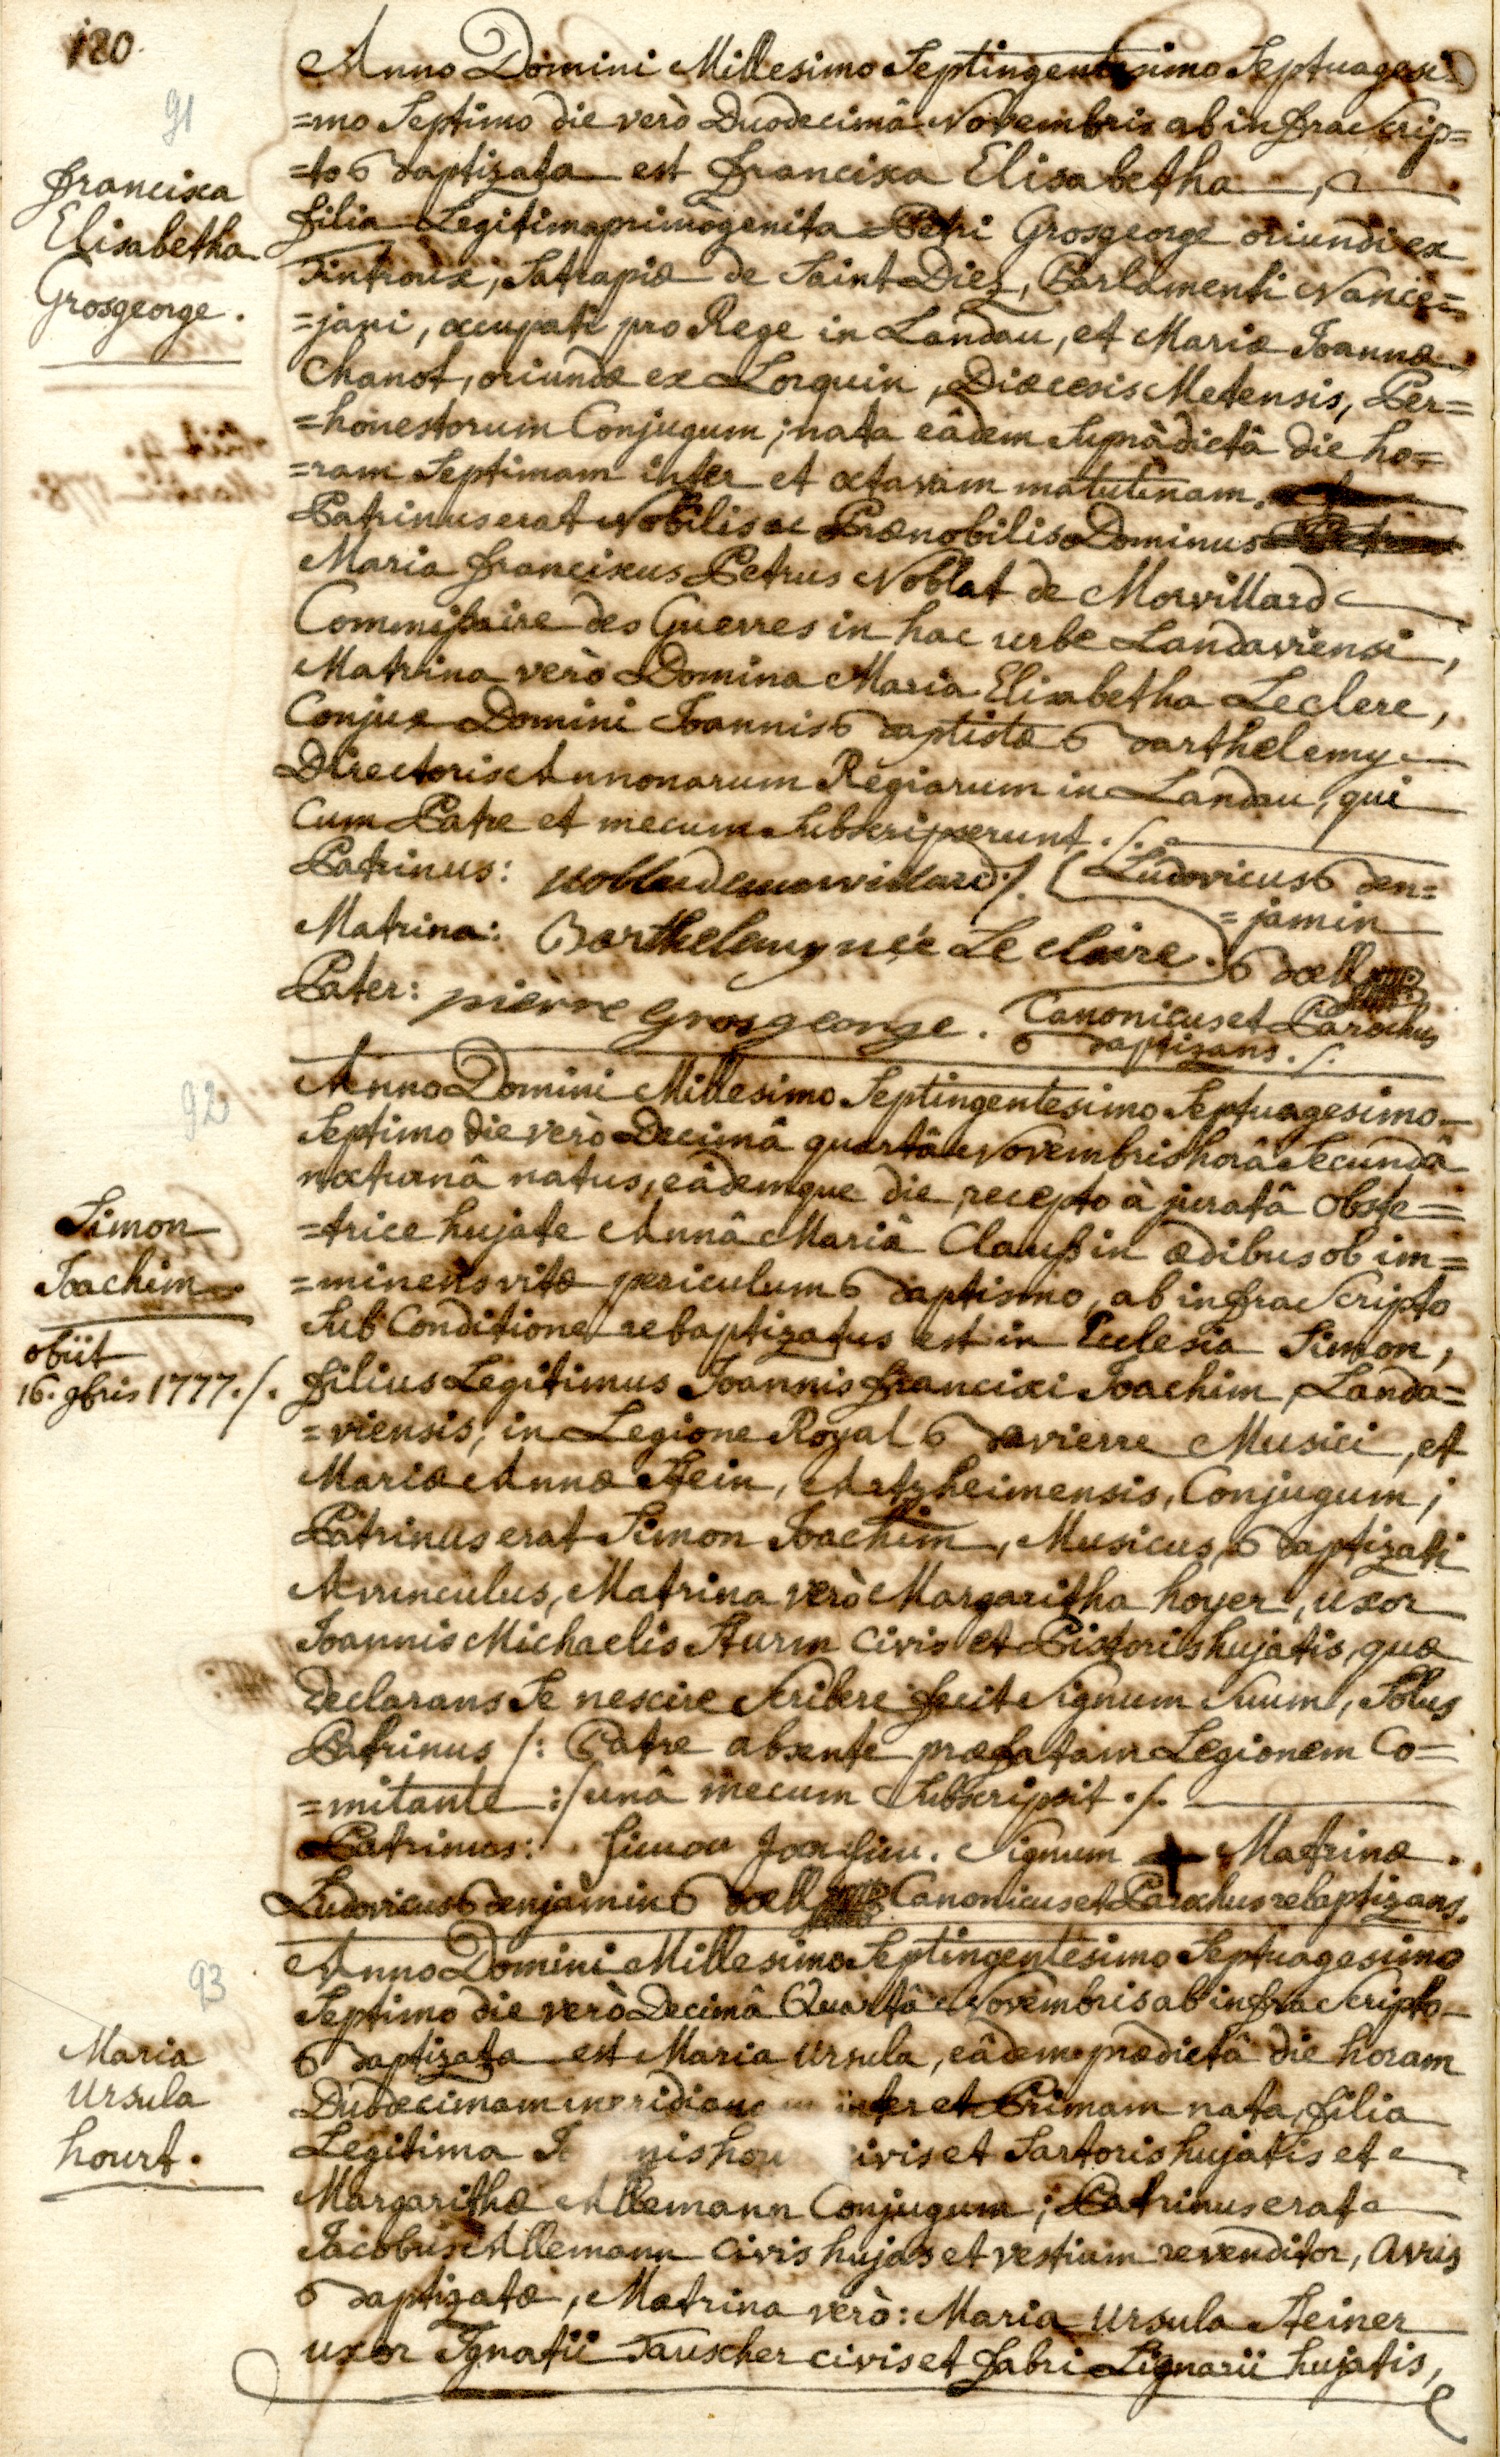 180.
91
Anno Domini Millesimo Septingentesimo Septuagesi=
=mo Septimo die verò Duodecimâ Novembris ab infra Scrip=
=to Baptizata est Francisca Elisabetha
Francisca
Elisabetha
Grosgeorge.
filia Legitima primogenita Petri Grosgeorge oriundi ex
Tintroux, Satrapiæ de Saint Diez, Parlamenti Nancie=
=jani, occupati pro Rege in Landau, et Mariæ Joannæ
Chanot, oriundæ ex Lorquin, Diœcesis Metensis, Per=
=honestorum Conjugum; nata eâdem Suprâdictâ die ho=
=ram Septimam inter et octavam matutinam.
Patrinus erat Nobilis ac Prænobilis Dominus
Maria Franciscus Petrus Noblat de Morvillard
Commissaire des Guerres in hac urbe Landaviensi,
Matrina verò Domina Maria Elisabetha Leclere,
Conjux Domini Joannis Baptistæ Barthelemy
Directoris Annonarum Regiarum in Landau, qui
Cum Patre et mecum Subscripserunt ./.
Patrinus: noblatdemorvillard./. Ludovicus Ben=
=jamin
Matrina: Barthelemy neé Le claire. Boell
Pater: pierre grosgeorge. Canonicus et Parochus
Baptizans ./.
92
Anno Domini Millesimo Septingentesimo Septuagesimo
Septimo die verò Decimâ quartâ Novembris horâ Secundâ
nocturnâ natus, eâdemque die, recepto à juratâ Obste=
=trice hujate Annâ Mariâ Clauß in ædibus ob im=
=minens vitæ periculum Baptismo, ab infra Scripto
Sub Conditione rebaptizatus est in Ecclesia Simon,
Simon
Joachim.
obiit
16. 9bris 1777./.
filius Legitimus Joannis Francisci Joachim, Landa=
=viensis, in Legione Royal Bavierre Musici, et
Mariæ Annæ Stein, Artzheimensis, Conjugum;
Patrinus erat Simon Joachim, Musicus, Baptizati
Avunculus, Matrina verò Margaritha hoyer, uxor
Joannis Michaelis Sturm civis et Pistoris hujatis, quæ
declarans Se nescire Scribere fecit Signum Suum, Solus
Patrinus /: Patre absente præfatam Legionem Co=
=mitante :/ unâ mecum Subscripsit ./.
Patrinus: Simon Joachim. Signum + Matrinæ.
Ludovicus Benjamin Boell Canonicus et Parochus rebaptizans.
93
Anno Domini Millesimo Septingentesimo Septuagesimo
Septimo die verò Decimâ Quartâ Novembris ab infra Scripto
Baptizata est Maria Ursula, eâdem prædictâ die horam
Maria
Ursula
hourt.
Duodecimam meridiana inter et Primam nata, filia
Legitima Jo nis hou ivis et Sartoris hujatis et
Margarithæ Allemann Conjugum; Patrinus erat
Jacobus Allemann civis hujas et vestium revenditor, avus
Baptizatæ, Matrina verò: Maria Ursula Steiner
uxor Ignatii Tauscher civis et fabri Lignarii hujatis,